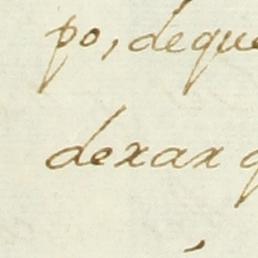 po, deque
dexax